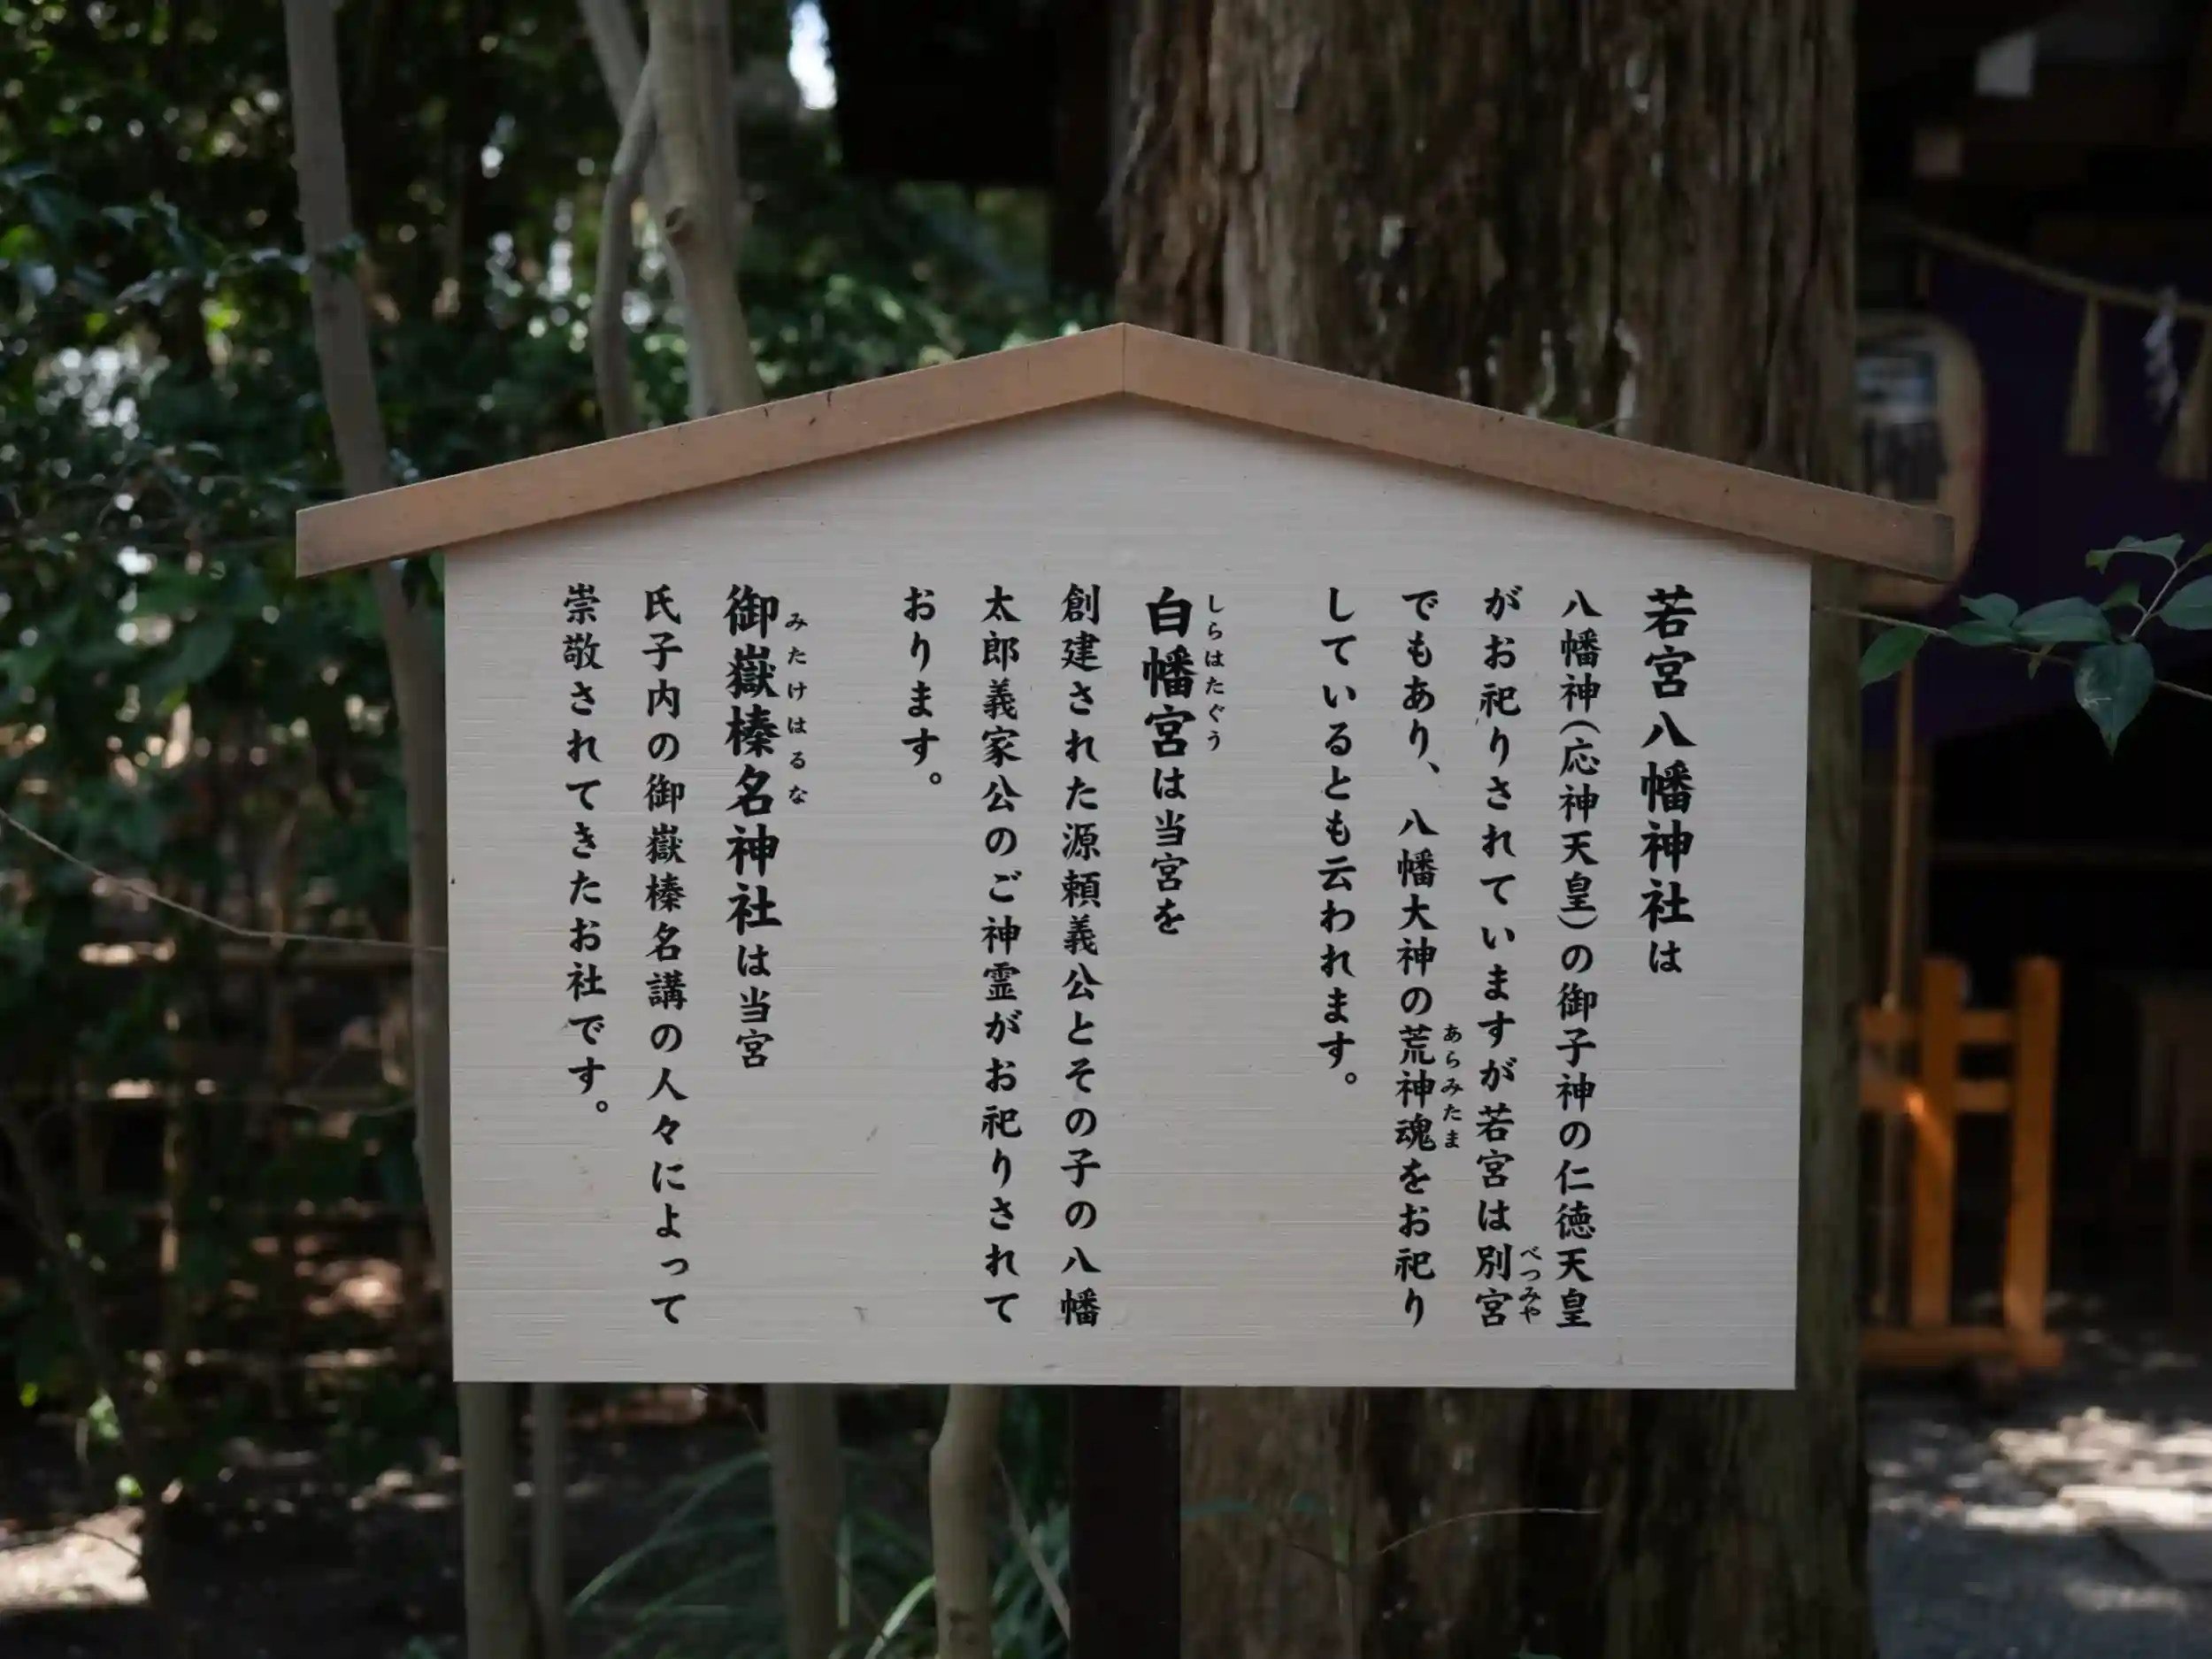 若宮八幡神社は
八幡神(応神天皇)の御子神の仁徳天皇
がお祀りされていますが若宮は別宮
べつみや
でもあり、八幡大神の荒神魂をお祀り
あらみたま
しているとも云われます。
白幡宮は当宮を
しらはたぐう
創建された源頼義公とその子の八幡
太郎義家公のご神霊がお祀りされて
おります。
御嶽榛名神社は当宮
みたけはるな
氏子内の御嶽榛名講の人々によって
崇敬されてきたお社です。